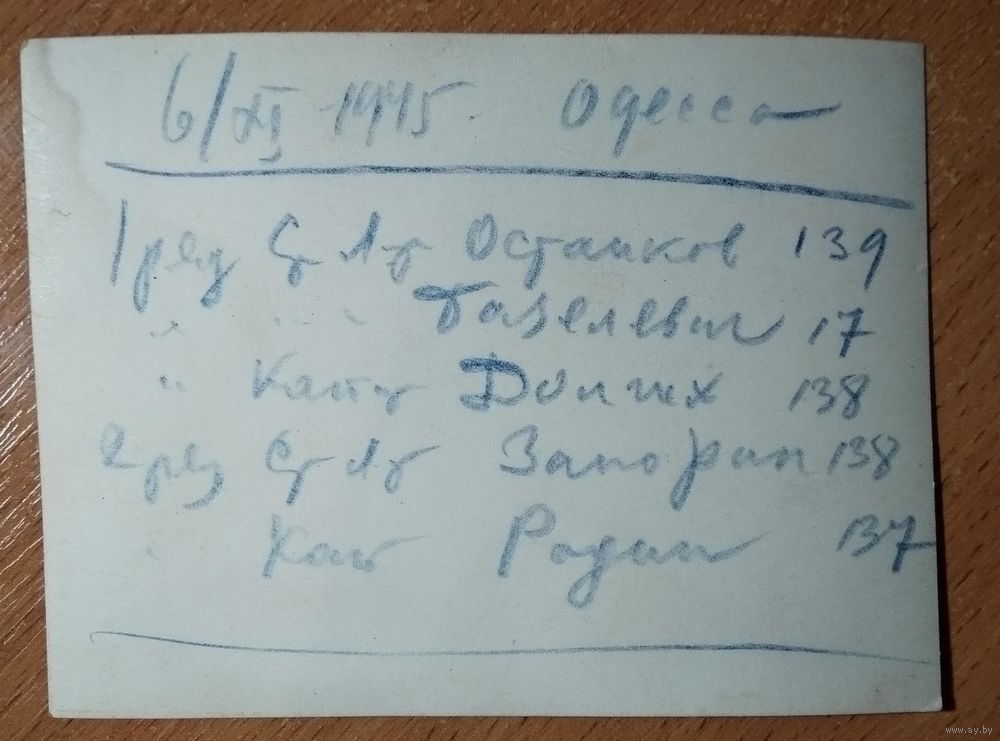 6/XI 1945. Одесса
1 ряд Ст Лт Остапков 139
" " " Базелевич 17
" Капт Долгих 138
2 ряд Ст Лт Запорин 138
" Кап Родин 137
www.ay.by